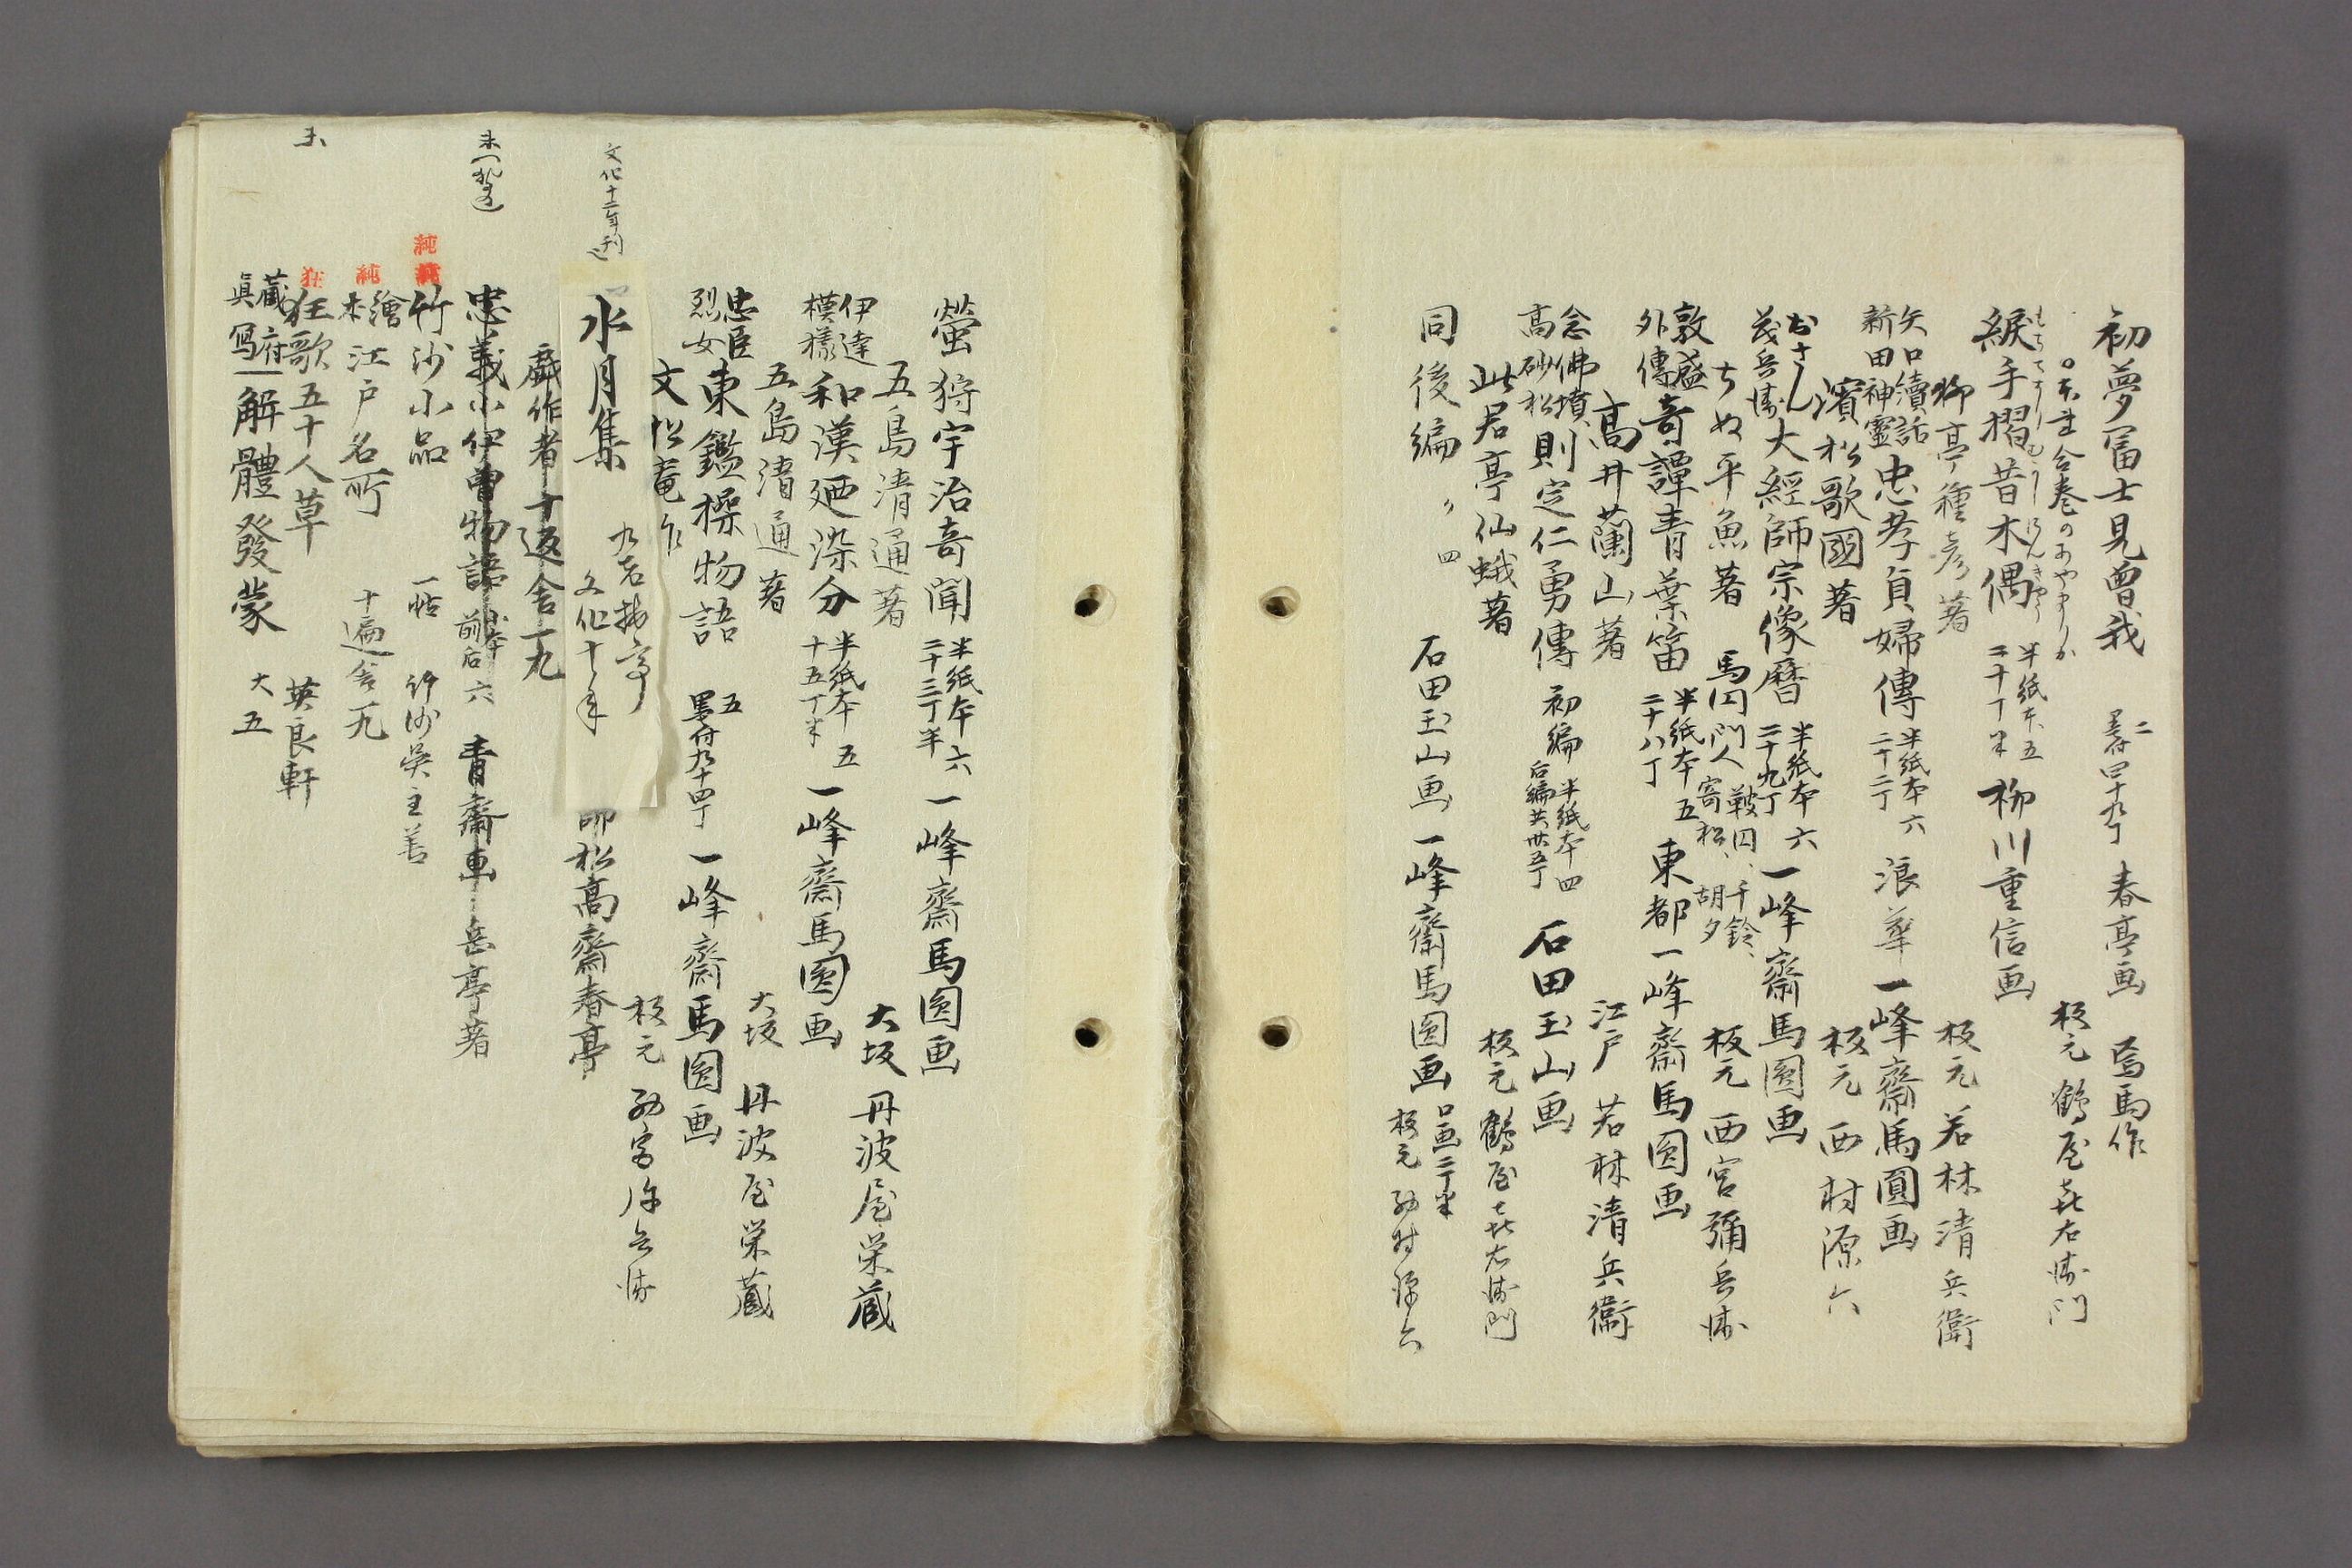 初夢冨士見曽我 二 墨付四十九丁 春亭画 焉馬作
板元 鶴屋喜右衛門
綟手摺昔木偶 半紙本五 二十丁半 柳川重信画
柳亭種彦著 板元 若林清兵衛
矢口續話 新田神霊 忠孝貞婦傳 半紙本六 二十二丁 浪華 一峰齋馬圓画
濱松歌國著 板元 西村源六
おさん 茂兵衛 大經師宗像暦 半紙本六 二十九丁 一峰齋馬圓画
ちぬ平魚著 馬圓門人 鞁圓、千鈴、寄松、胡夕 板元 西宮彌兵衛
敦盛外傳 奇譚青葉笛 半紙本五 二十八丁 東都 一峰齋馬圓画
高井蘭山著 江戸 若林清兵衛
念佛墳 高砂松 則定仁勇傳 初編 半紙本四 后編共卅五丁 石田玉山画
此君亭仙蛾著 板元 鶴屋喜右衛門
同後編 〃 四 石田玉山画 一峰齋馬圓画 口画二丁半 板元
螢狩宇治奇聞 半紙本六 二十三丁半 一峰齋馬圓画
五島清通著 大坂 丹波屋栄蔵
伊達模様 和漢廼染分 半紙本五 十五丁半 一峰齋馬圓画
五島清通著 大坂 丹波屋栄蔵
忠臣烈女 東鑑操物語 五 墨付九十四丁 一峰齋馬圓画
文化十二年刊
水月集 文化十年
師松高齋春亭
戯作者十返舎一九
忠義小伊曽物語 前后六 青齋画 岳亭著
純
竹沙小品 一帖 竹沙呉主善
純
繪本 江戸名所 十遍舎一九
狂
狂歌五十人草 英良軒
藏府真寫 解體發蒙 大五